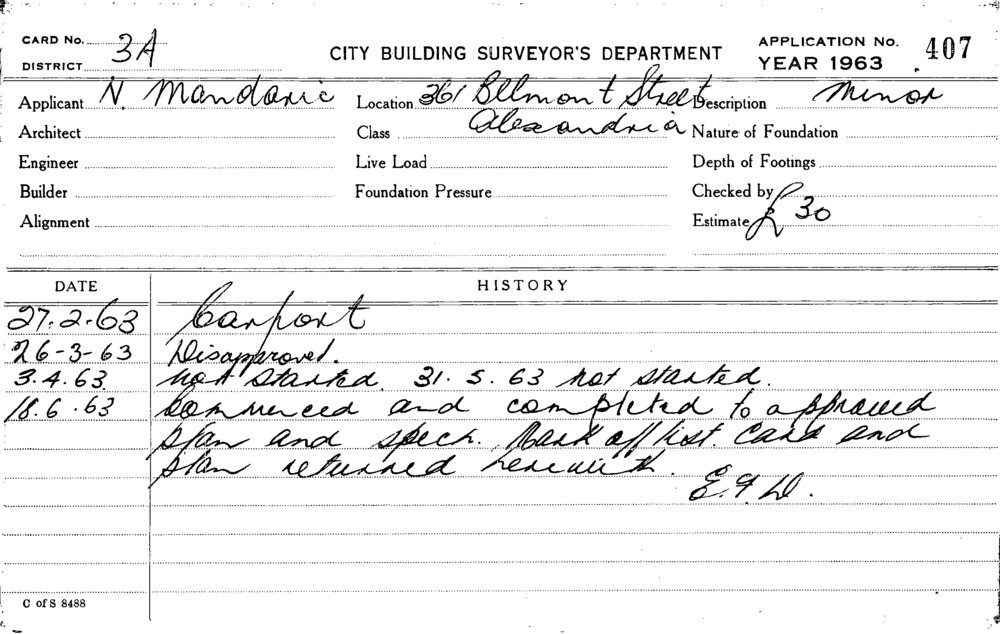 CARD No. 3A
DISTRICT
CITY BUILDING SURVEYOR'S DEPARTMENT
APPLICATION No. 407
YEAR 1963
Applicant N. Mandaric Location 361 Bllmont Street Description Minor
Architect Class Alexandria Nature of Foundation
Engineer Live Load Depth of Footings
Builder Foundation Pressure Checked by
Alignment Estimate £ 30
DATE HISTORY
27.2.63 Carport
26-3-63 Disapproved.
3.4.63. Not started. 31.5.63 not started.
18.6.63 Commenced and completed to approved
plan and specn. Mark off list. Card and
plan returned herewith.
E.F.D.
C of S 8488